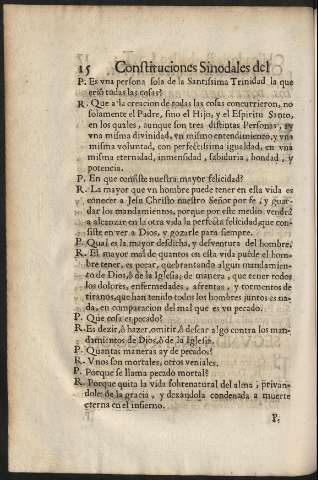 15 Constituciones Sinodales del
P. Es vna persona sola de la Santissima Trinidad la que
criò todas las cosas?
R. Que a la creacion de todas las cosas concurrieron, no
solamente el Padre, sino el Hijo, y el Espiritu Santo,
en los quales, aunque son tres distintas Personas, ay
vna misma divinidad, vn mismo entendimiento, y vna
misma voluntad, con perfectissima igualdad, en vna
misma eternidad, inmensidad, sabiduria, bondad, y
potencia.
P. En que consiste nuestra mayor felicidad?
R. La mayor que vn hombre puede tener en esta vida es
conocer a Jesu Christo nuestro Señor por fè, y guar-
dar los mandamientos, porque por este medio vendrà
a alcanzar en la otra vida la perfecta felicidad, que con-
siste en ver a Dios, y gozarle para siempre.
P. Qual es la mayor desdicha, y desventura del hombre?
R. El mayor mal de quantos en esta vida puede el hom-
bre tener, es pecar, quebrantando algun mandamien-
to de Dios, ò de la Iglesia; de manera, que tener todos
los dolores, enfermedades, afrentas, y tormentos de
tiranos, que han tenido todos los hombres juntos es na-
da, en comparacion del mal que es vn pecado.
P. Que cosa es pecado?
R. Es dezir, ò hazer, omitir, ò desear algo contra los man-
damientos de Dios, ò de la Iglesia.
P. Quantas maneras ay de pecados?
R. Vnos son mortales, otros veniales.
P. Porque se llama pecado mortal?
R. Porque quita la vida sobrenatural del alma, privan-
dole de la gracia, y dexandola condenada a muerte
eterna en el infierno.
P.